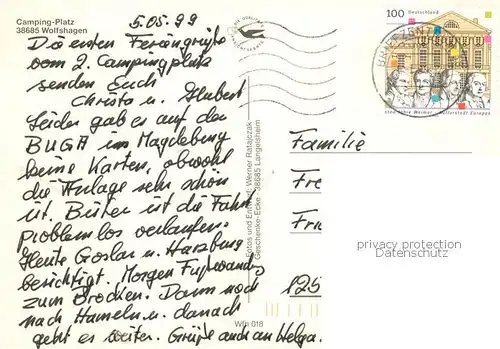 Camping-Platz
38685 Wolfshagen
5.05.99
Die ersten Feriengrüße
vom 2. Campingplatz
senden Euch
Christa u. Hubert
Leider gab es auf der
BUGA im Magdeburg
keine Karten, obwohl
die Anlage sehr schön
ist. Bisher ist die Fahrt
problemlos verlaufen.
Heute Goslar u. Harzburg
besichtigt. Morgen Fußwandg
zum Brocken. Dann noch
nach Hameln u. danach
geht es weiter. Grüße auch an Helga.
Fotos und Entwurf: Werner Ratajczak
Geschenke-Ecke · 38685 Langelsheim
Wfh 018
100 Deutschland
1100 Jahre Weimar · Kulturstadt Europas
Familie
Fre
Frie
125
privacy protection
Datenschutz